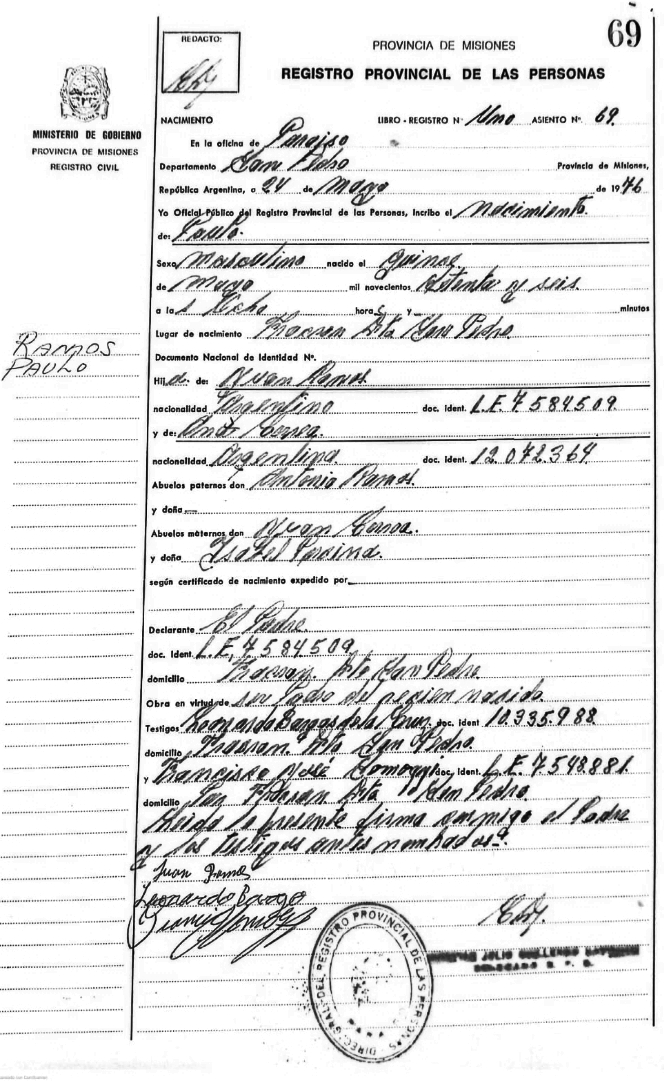 69
REDACTO:
PROVINCIA DE MISIONES
REGISTRO PROVINCIAL DE LAS PERSONAS
MINISTERIO DE GOBIERNO
PROVINCIA DE MISIONES
REGISTRO CIVIL
NACIMIENTO LIBRO - REGISTRO Nº Uno ASIENTO Nº. 69.
En la oficina de Paraiso
Departamento San Pedro Provincia de Misiones,
República Argentina, a 24 de Mayo de 1976
Yo Oficial Público del Registro Provincial de las Personas, incribo el nacimiento.
de: Paulo.
Sexo Masculino nacido el quince
de Mayo mil novecientos setenta y seis.
a las Ocho horas y minutos
Lugar de nacimiento Pto San Pedro
RAMOS
PAULO
Documento Nacional de Identidad Nº.
Hijo de: Juan Ramos.
nacionalidad Argentino doc. ident. L.E. 7.584.509.
y de:
nacionalidad Argentina doc. ident. 12.072.364
Abuelos paternos don Antonia Ramos.
y doña
Abuelos maternos don Juan
y doña Isabel
según certificado de nacimiento expedido por
Declarante El Padre
doc. ident. L.E. 7.584509
domicilio Pto San Pedro
Obra en virtud de ser de recien nacido
Testigos Leonardo doc. ident 10.935.988
domicilio Pto San Pedro.
y Francisco José doc. ident. L.E. 7.548.881.
domicilio Pto San Pedro.
Leida la presente firma conmigo el Padre
y los testigos antes nombrados.
Juan Ramos
Leonardo
JULIO GUILLERMO
DELEGADO R. P. P.
DIREC. GRAL. DEL REGISTRO PROVINCIAL DE LAS PERSONAS